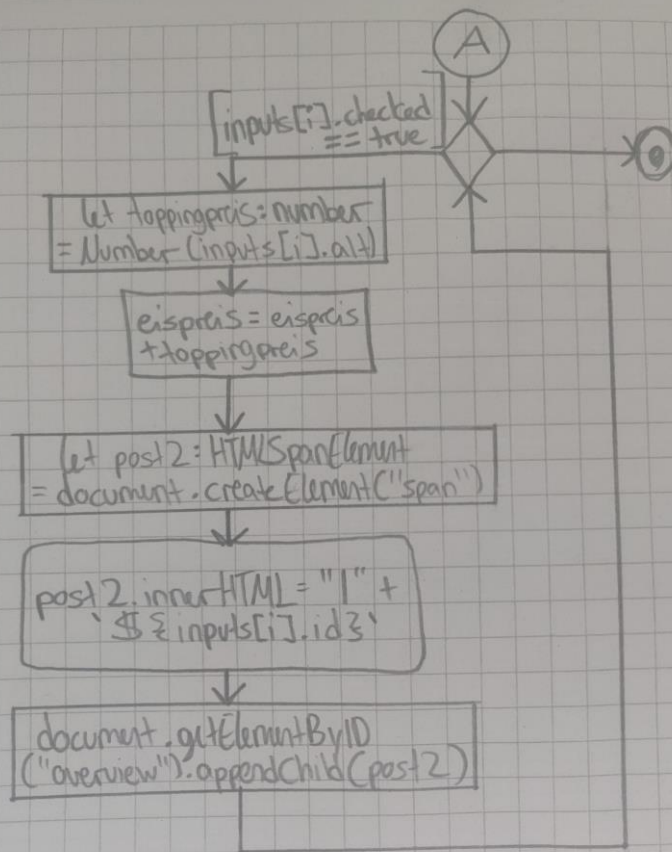 A
[inputs[i].checked
== true]
let toppingpreis: number
= Number (inputs[i].alt)
eispreis = eispreis
+toppingpreis
let post2: HTMLSpanElement
= document.createElement("span")
post2.innerHTML = "|" +
`${inputs[i].id}`
document.getElementByID
("overview").appendChild(post2)